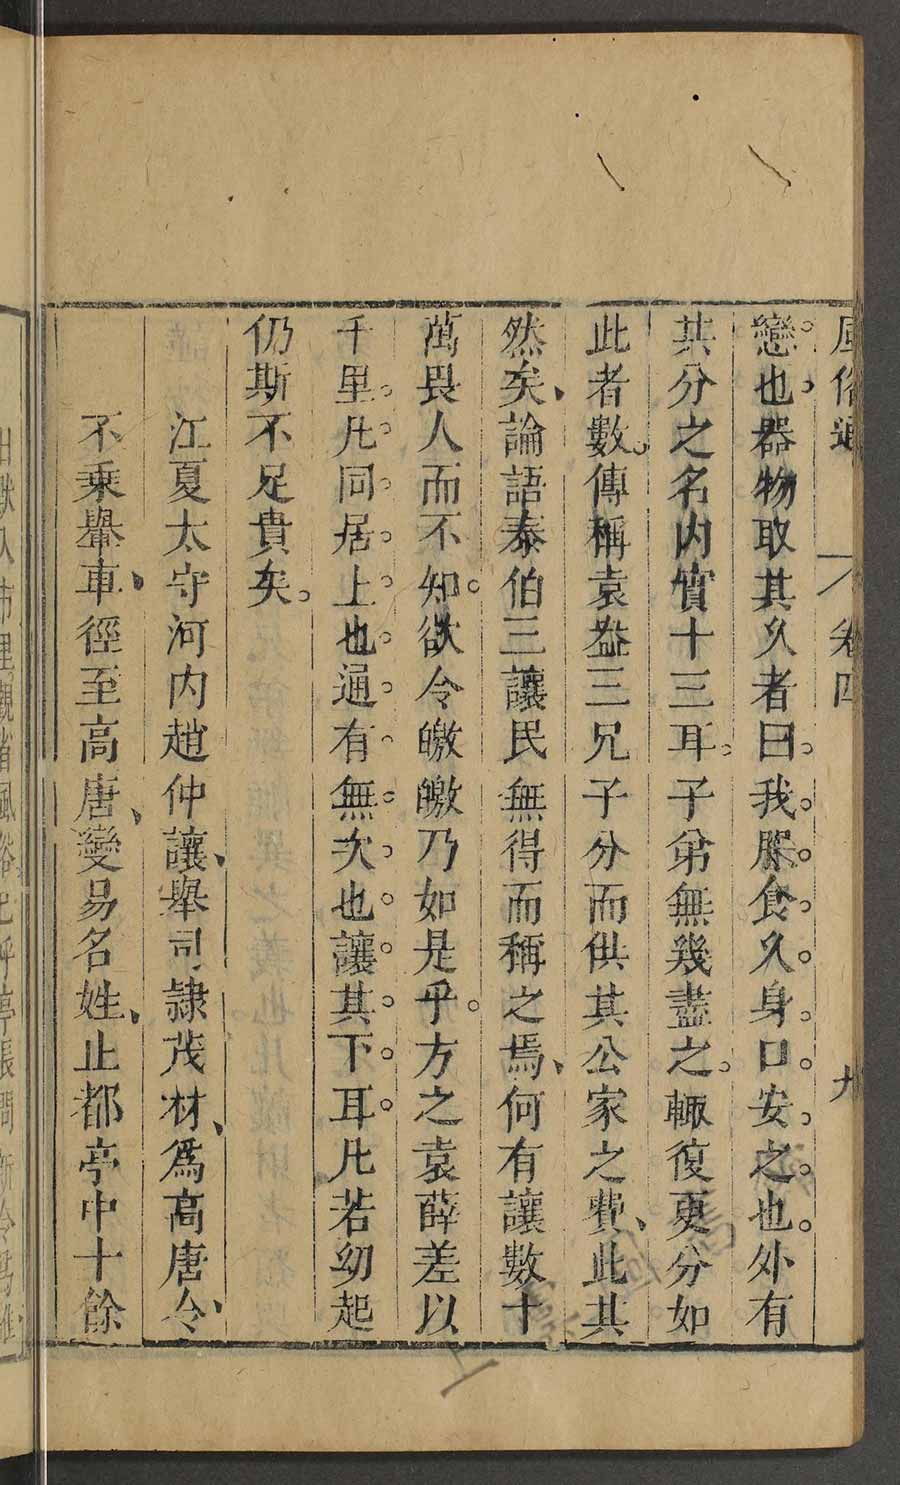 風俗通 卷四 九
戀也器物取其久者曰我服食久身口安之也外有
其分之名内實十三耳子弟無幾盡之輙復更分如
此者數傳稱袁盎三兄子分而供其公家之費此其
然矣論語泰伯三讓民無得而稱之焉何有讓數十
萬畏人而不知欲令皦皦乃如是乎方之袁薛差以
千里凡同居上也通有無次也讓其下耳凡若幼起
仍斯不足貴矣
江夏太守河内趙仲讓舉司隷茂材爲高唐令
不乘轝車徑至高唐變易名姓止都亭中十餘